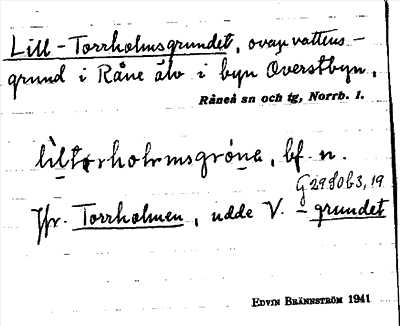 Lill-Torrholmsgrundet, ovanvattens-
grund i Råne älv i byn Överstbyn.
Råneå sn och tg, Norrb. l.
bf. n.
Jfr. Torrholmen, udde V. - grundet
EDVIN BRÄNNSTRÖM 1941